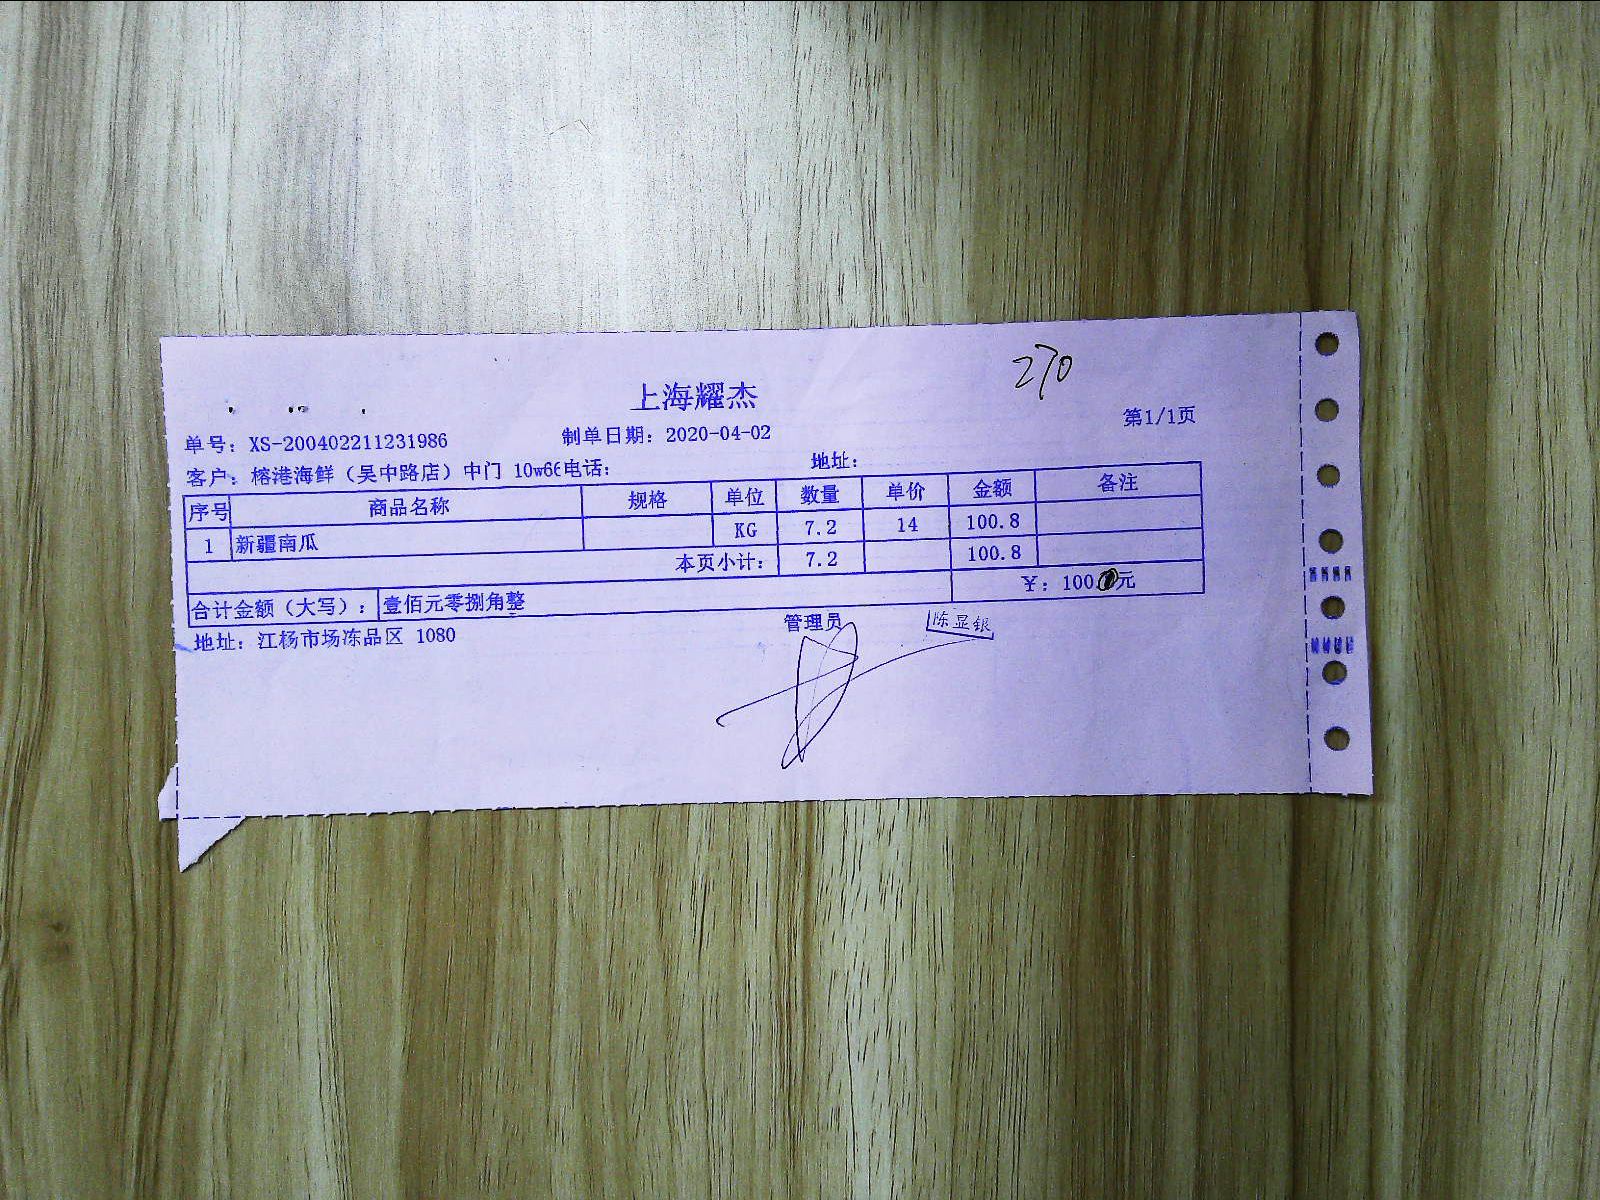 270
上海耀杰
第1/1页
单号：XS-200402211231986 制单日期：2020-04-02
客户：榕港海鲜（吴中路店）中门 10w66电话： 地址：
序号 商品名称 规格 单位 数量 单价 金额 备注
1 新疆南瓜 KG 7.2 14 100.8
本页小计： 7.2 100.8
合计金额（大写）： 壹佰元零捌角整 ￥：100.元
地址：江杨市场冻品区 1080 管理员 陈显银